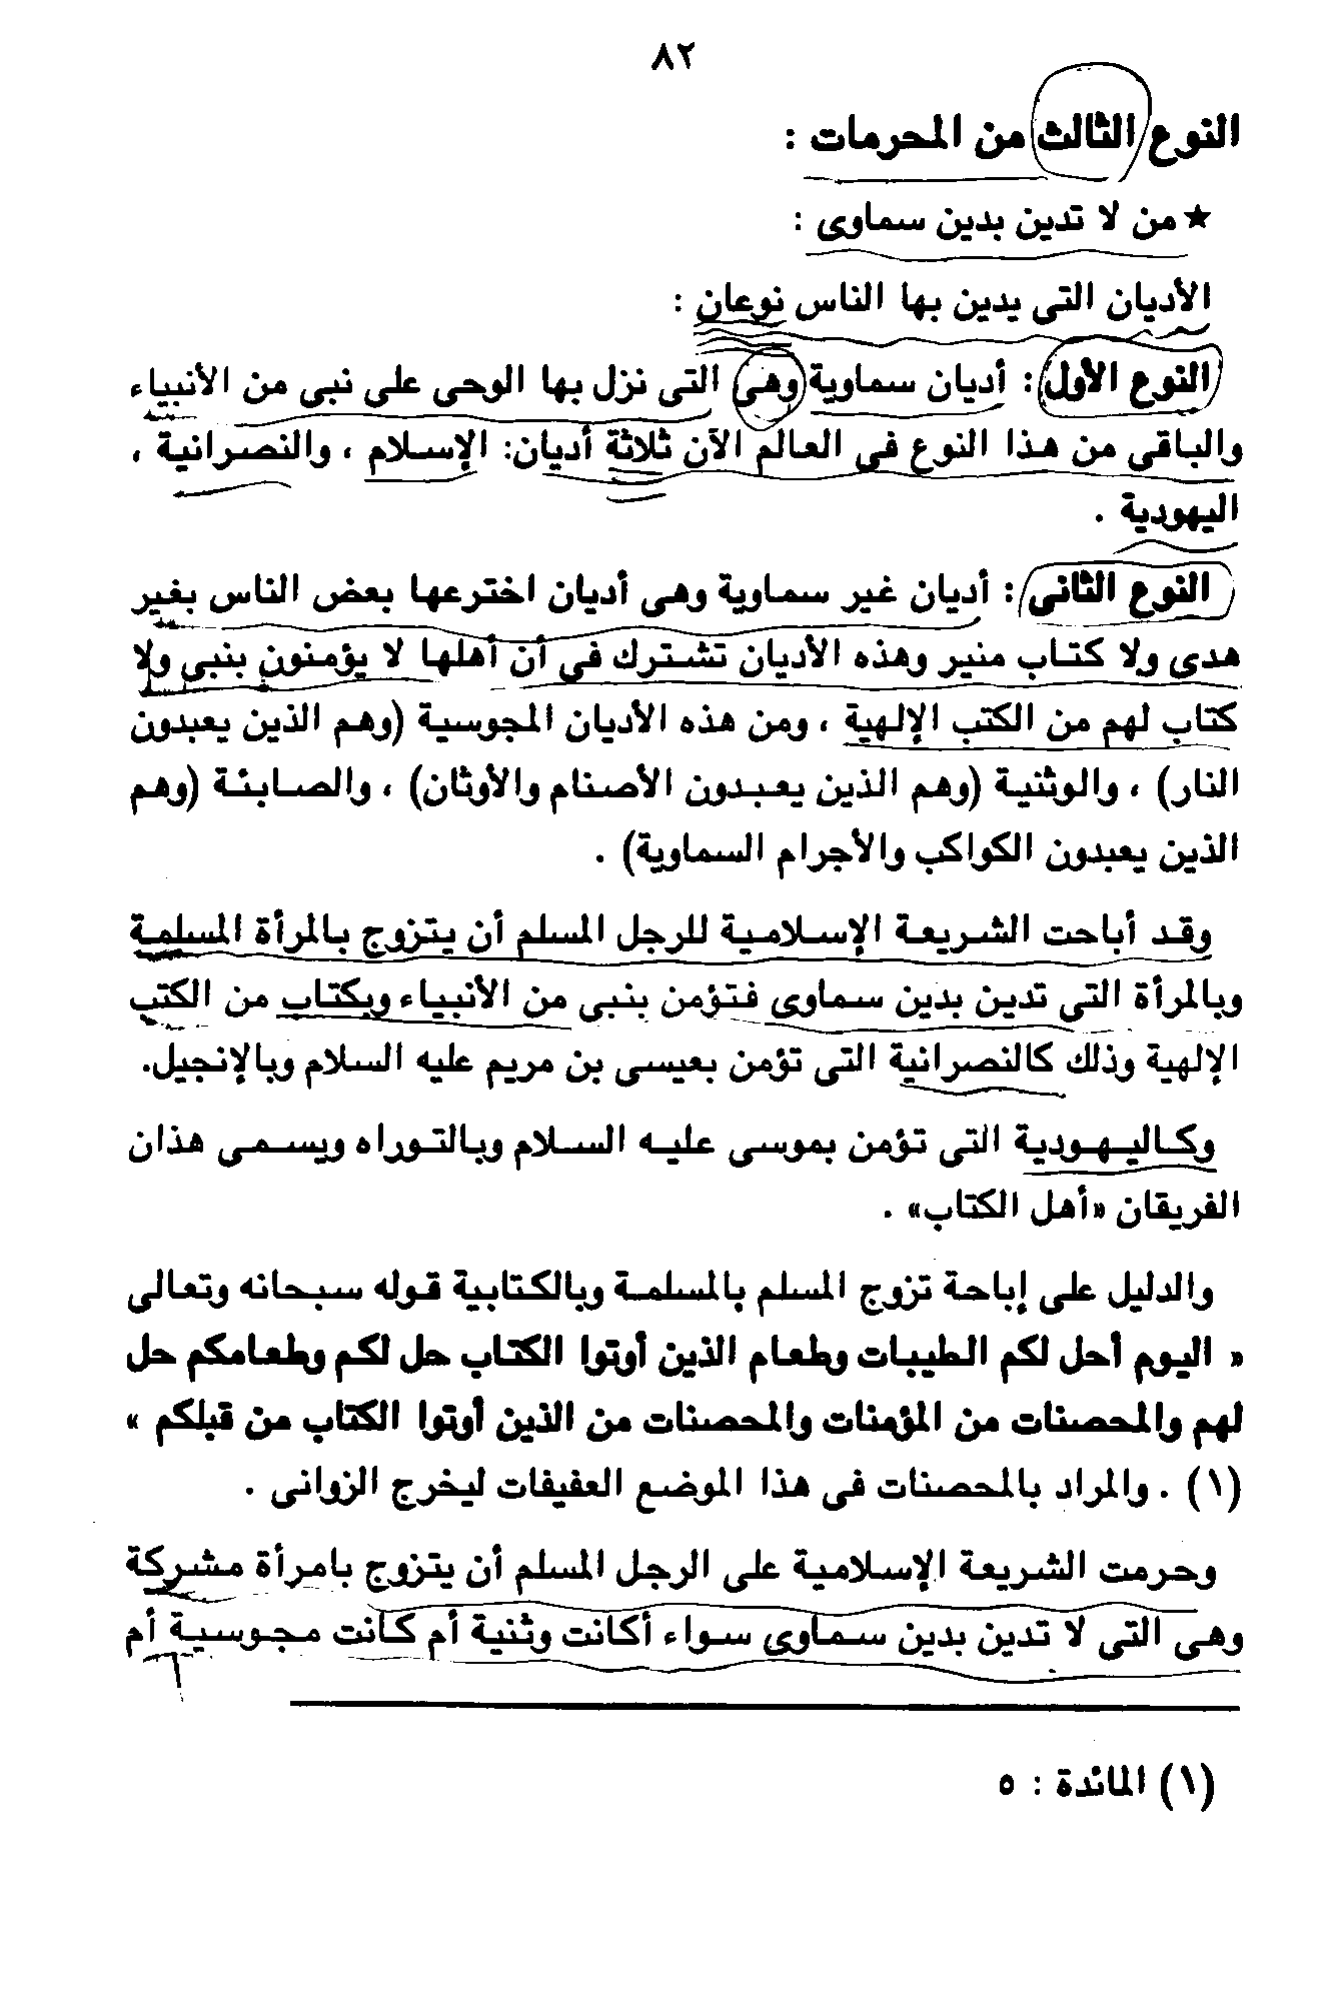 ٨٢
النوع الثالث من المحرمات :
★ من لا تدين بدين سماوى :
الأديان التى يدين بها الناس نوعان :
النوع الأول : أديان سماوية وهى التى نزل بها الوحى على نبى من الأنبياء
والباقى من هذا النوع فى العالم الآن ثلاثة أديان: الإسلام ، والنصرانية ،
اليهودية .
النوع الثانى : أديان غير سماوية وهى أديان اخترعها بعض الناس بغير
هدى ولا كتاب منير وهذه الأديان تشترك فى أن أهلها لا يؤمنون بنبى ولا
كتاب لهم من الكتب الإلهية ، ومن هذه الأديان المجوسية (وهم الذين يعبدون
النار) ، والوثنية (وهم الذين يعبدون الأصنام والأوثان) ، والصابئة (وهم
الذين يعبدون الكواكب والأجرام السماوية) .
وقد أباحت الشريعة الإسلامية للرجل المسلم أن يتزوج بالمرأة المسلمة
وبالمرأة التى تدين بدين سماوى فتؤمن بنبى من الأنبياء وبكتاب من الكتب
الإلهية وذلك كالنصرانية التى تؤمن بعيسى بن مريم عليه السلام وبالإنجيل.
وكاليهودية التى تؤمن بموسى عليه السلام وبالتوراه ويسمى هذان
الفريقان «أهل الكتاب» .
والدليل على إباحة تزوج المسلم بالمسلمة وبالكتابية قوله سبحانه وتعالى
« اليوم أحل لكم الطيبات وطعام الذين أوتوا الكتاب حل لكم وطعامكم حل
لهم والمحصنات من المؤمنات والمحصنات من الذين أوتوا الكتاب من قبلكم »
(١) . والمراد بالمحصنات فى هذا الموضع العفيفات ليخرج الزوانى .
وحرمت الشريعة الإسلامية على الرجل المسلم أن يتزوج بامرأة مشركة
وهى التى لا تدين بدين سماوى سواء أكانت وثنية أم كانت مجوسية أم
(١) المائدة : ٥